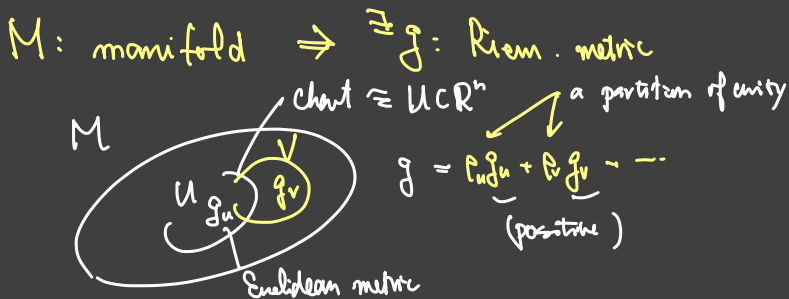 M: manifold ⇒ ∃g: Riem. metric
chart ≅ U⊂Rⁿ
a partition of unity
M
V
U g_u
g_v
g = ρ_u g_u + ρ_v g_v + ···
(positive)
Euclidean metric